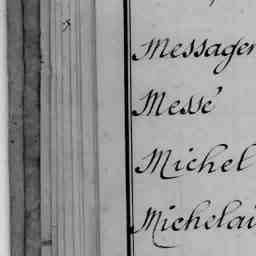 Messager
Messé
Michel
Michelai